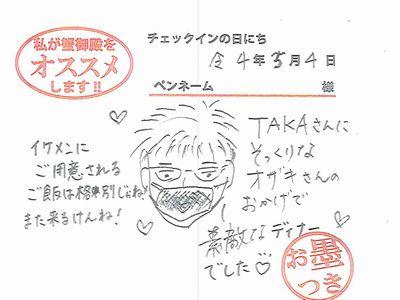 私が蟹御殿を
オススメ
します!!
チェックインの日にち
令4年5月4日
ペンネーム 様
イケメンに
ご用意される
ご飯は格別じゃね!
また来るけんね!
TAKAさんに
そっくりな
オザキさんの
おかげで
素敵なディナー
でした♡
お墨
つき